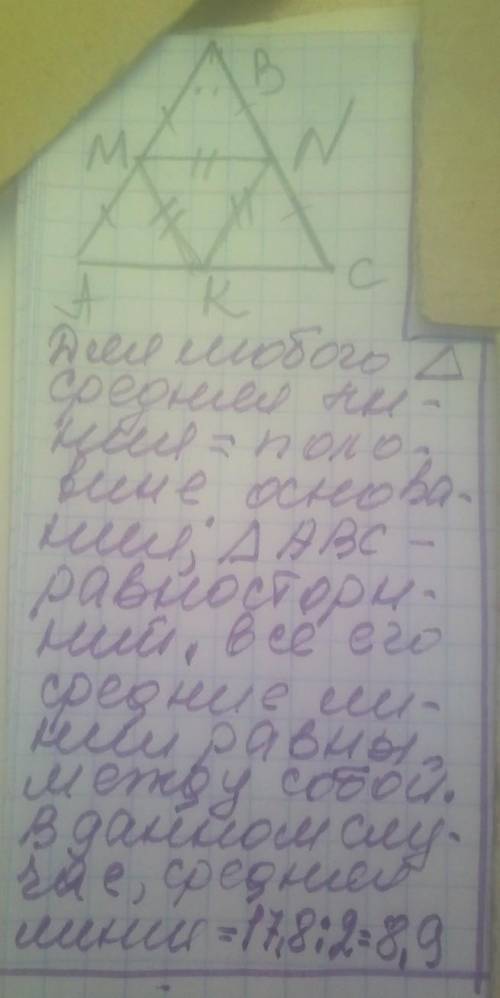 B
M N
A K C
Для любого △
средняя ли-
ния = поло-
вине основа-
ния; △ABC -
равносторн-
ний, все его
средние ли-
нии равны
между собой.
В данном слу-
чае, средняя
линия = 17,8:2=8,9